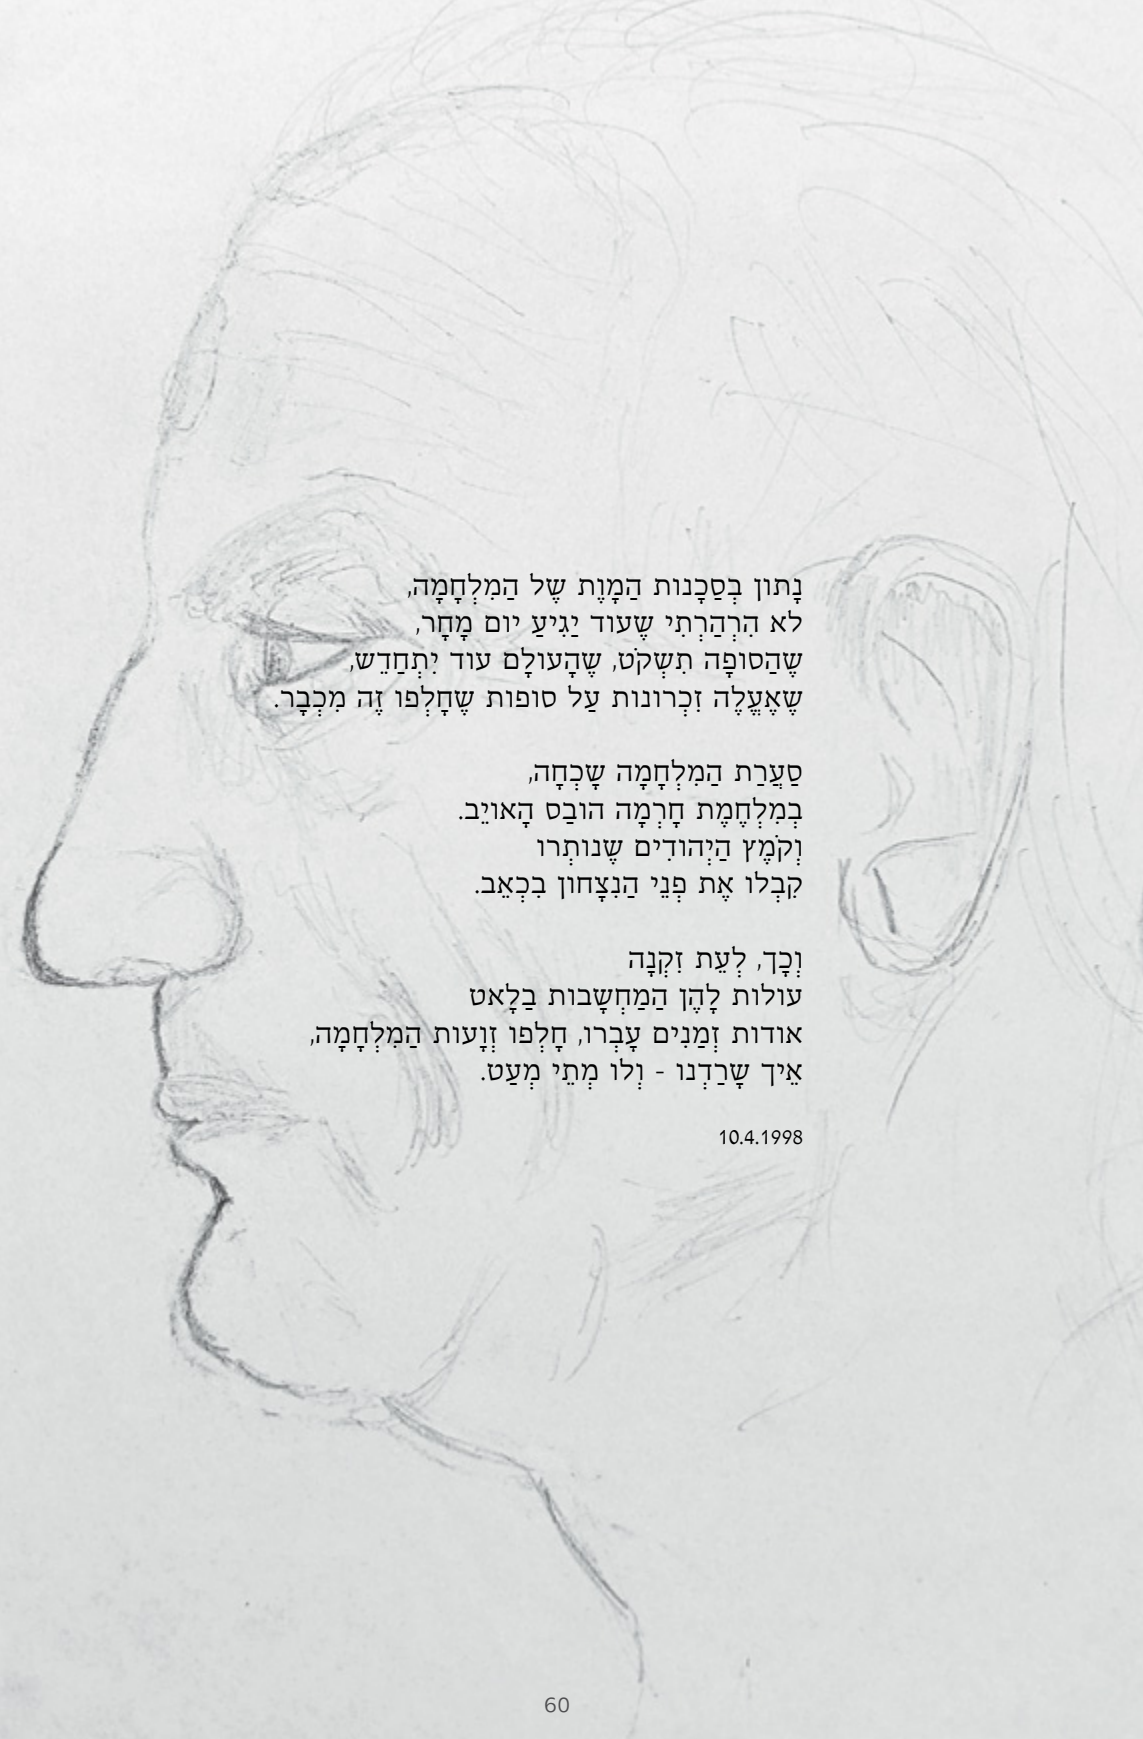 נָתוּן בְּסַכָּנוֹת הַמָּוֶת שֶׁל הַמִּלְחָמָה,
לֹא הִרְהַרְתִּי שֶׁעוֹד יַגִּיעַ יוֹם מָחָר,
שֶׁהַסּוּפָה תִּשְׁקֹט, שֶׁהָעוֹלָם עוֹד יִתְחַדֵּשׁ,
שֶׁאֶעֱלֶה זִכְרוֹנוֹת עַל סוּפוֹת שֶׁחָלְפוּ זֶה מִכְּבָר.
סַעֲרַת הַמִּלְחָמָה שָׁכְחָה,
בְּמִלְחֶמֶת חָרְמָה הוּבַס הָאוֹיֵב.
וְקֹמֶץ הַיְּהוּדִים שֶׁנּוֹתְרוּ
קִבְּלוּ אֶת פְּנֵי הַנִּצָּחוֹן בִּכְאֵב.
וְכָךְ, לְעֵת זִקְנָה
עוֹלוֹת לָהֶן הַמַּחְשָׁבוֹת בַּלָּאט
אוֹדוֹת זְמַנִּים עָבְרוּ, חָלְפוּ זְוָעוֹת הַמִּלְחָמָה,
אֵיךְ שָׂרַדְנוּ - וְלוּ מְתֵי מְעַט.
10.4.1998
60